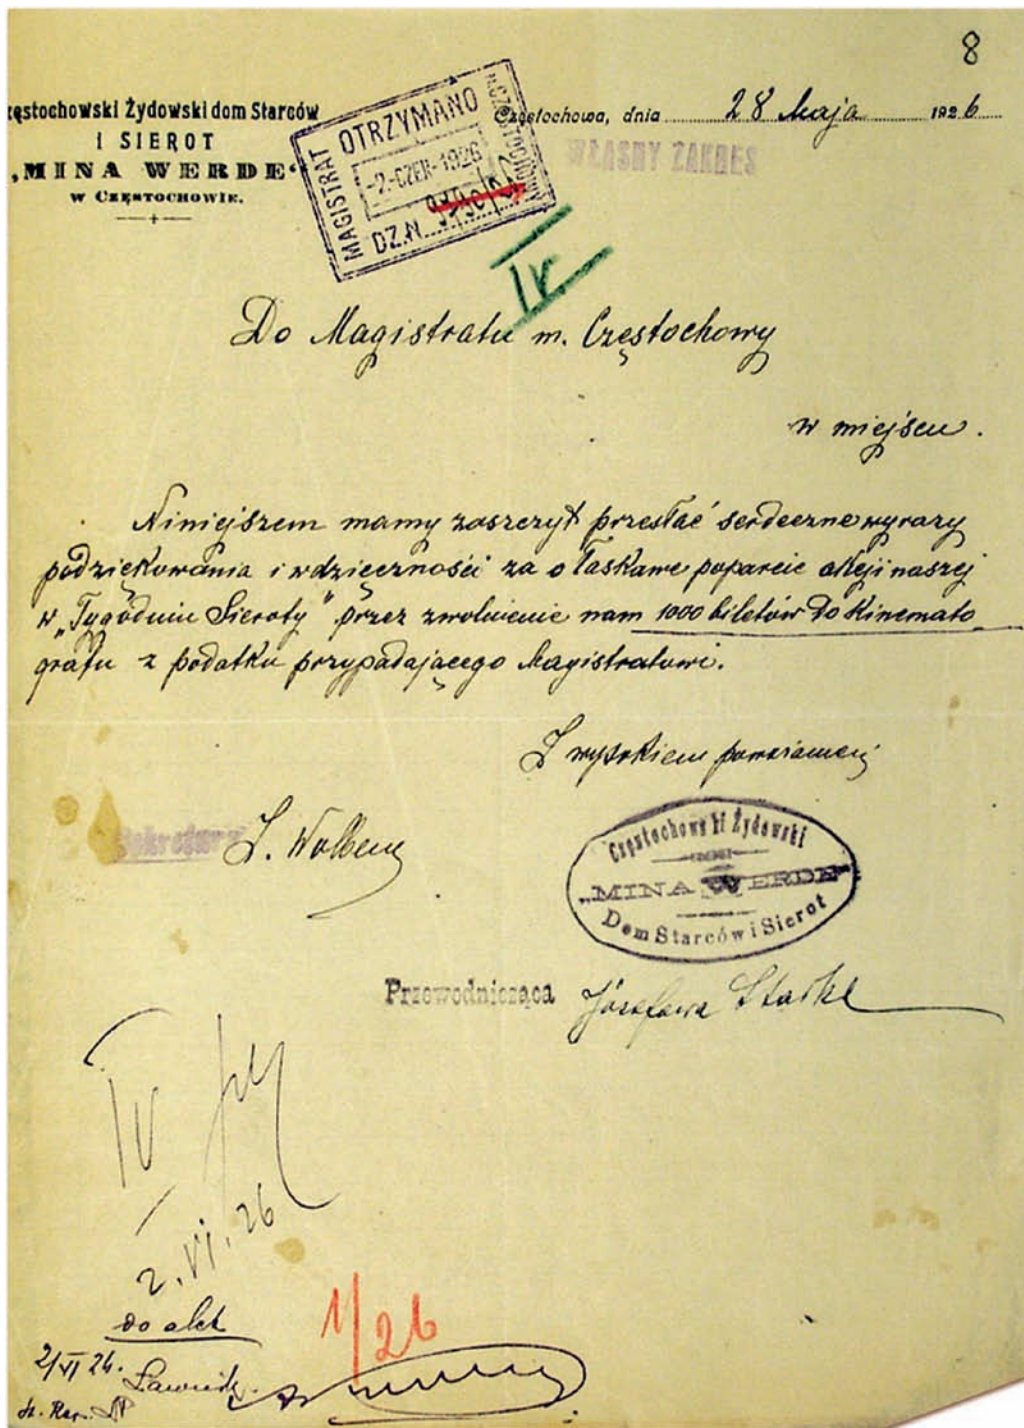 8
zęstochowski Żydowski dom Starców
I SIEROT
„MINA WERDE“
w Częstochowie.
MAGISTRAT
OTRZYMANO
-2.-CZER-1926
DZ.N.
W CZĘSTOCHOWIE
Częstochowa, dnia 28 Maja 1926
WŁASNY ZAKRES
IV
Do Magistratu m. Częstochowy
w miejscu.
Niniejszem mamy zaszczyt przesłać serdeczne wyrazy
podziękowania i wdzięczności za o łaskawe poparcie akcji naszej
w „Tygodniu Sieroty" przez zwolnienie nam 1000 biletów do Kinemato
grafu z podatku przypadającego Magistratowi.
Z wysokiem poważaniem
Sekretarz
Częstochowski Żydowski
„MINA WERDE“
Dom Starców i Sierot
Przewodnicząca Józefowa
IV
2.VI.26
do akt
2/VI 26. Ławnik
1/26